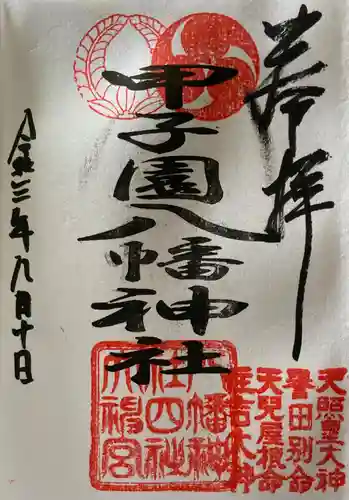 奉拝
甲子園八幡神社
令和三年九月十日
天照皇大神
誉田別命
天児屋根命
住吉大神
八幡神
社四社
大神宮